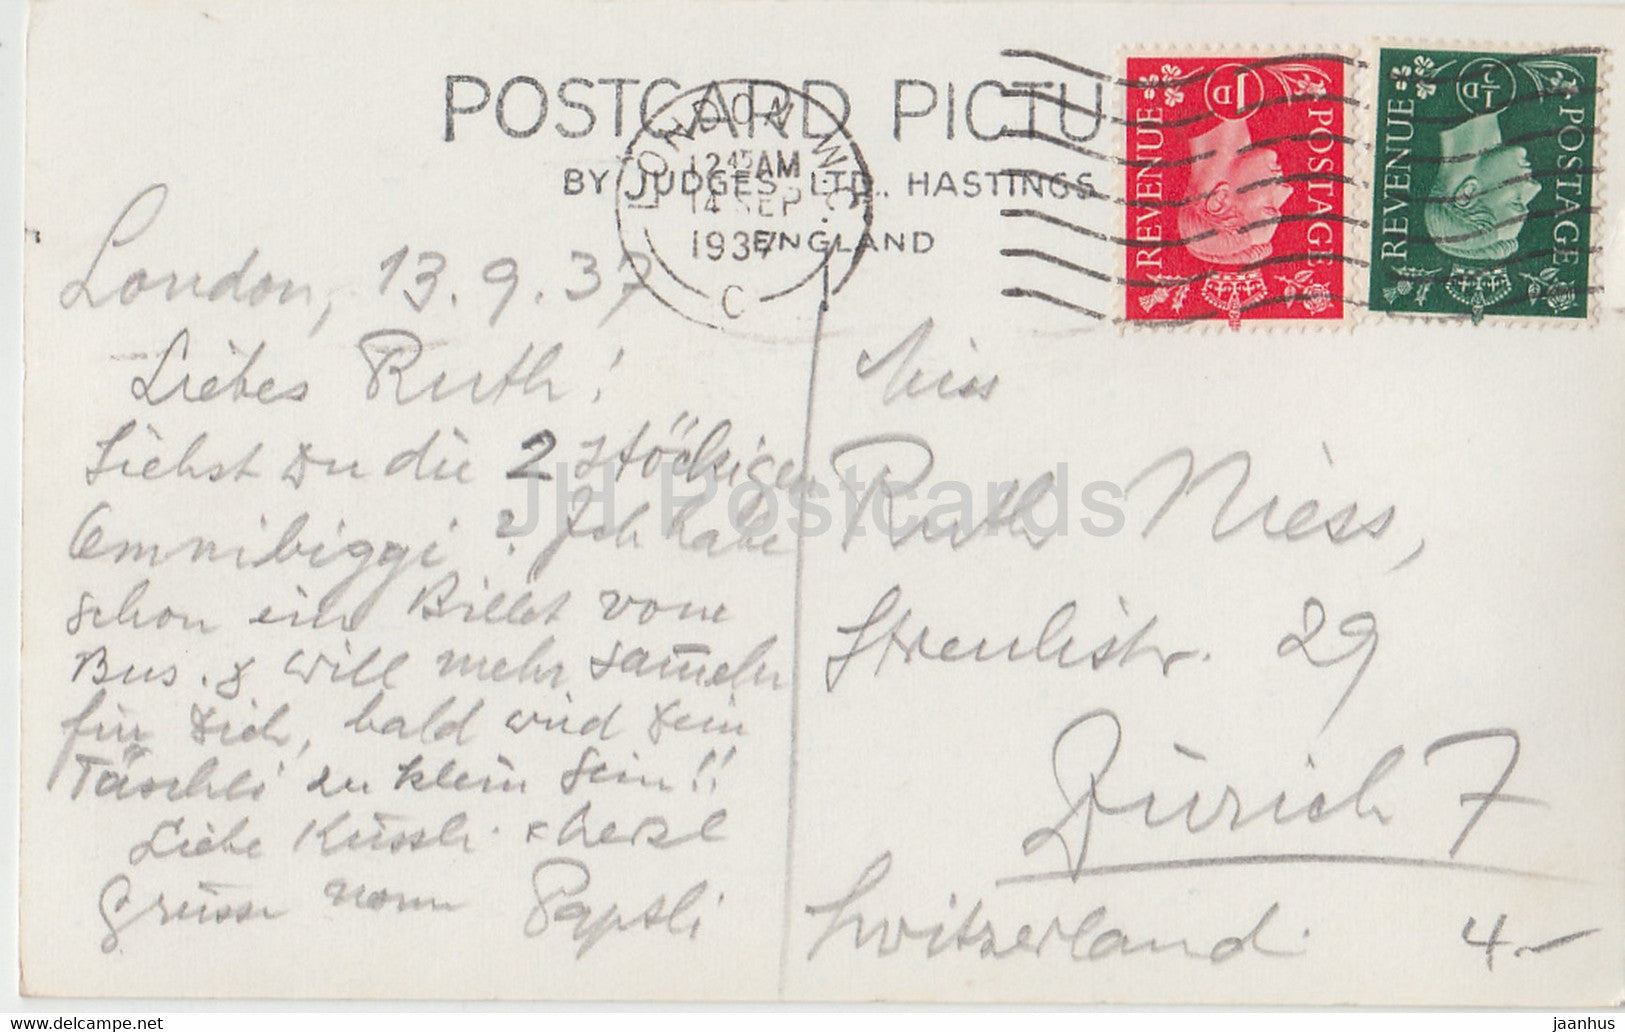 POSTCARD PICTU
BY JUDGES LTD., HASTINGS
ENGLAND
LONDON W
12 45 AM
14 SEP
1937
C
1D
POSTAGE
REVENUE
½D
POSTAGE
REVENUE
London, 13.9.37
Liebes Ruth!
Siehst Du die 2 stöckigen
Omnibiggi? Ich habe
schon ein Billet vom
Bus. & will mehr sam̄eln
für Dich, bald wird Dein
Täschli zu klein sein!!
Liebe Küssli. & herzl
Grüsse vom Papsli
Miss
Ruth Niess,
Streulistr. 29
Zürich 7
Switzerland.
4.-
JH Postcards
https://www.delcampe.net
jaanhus